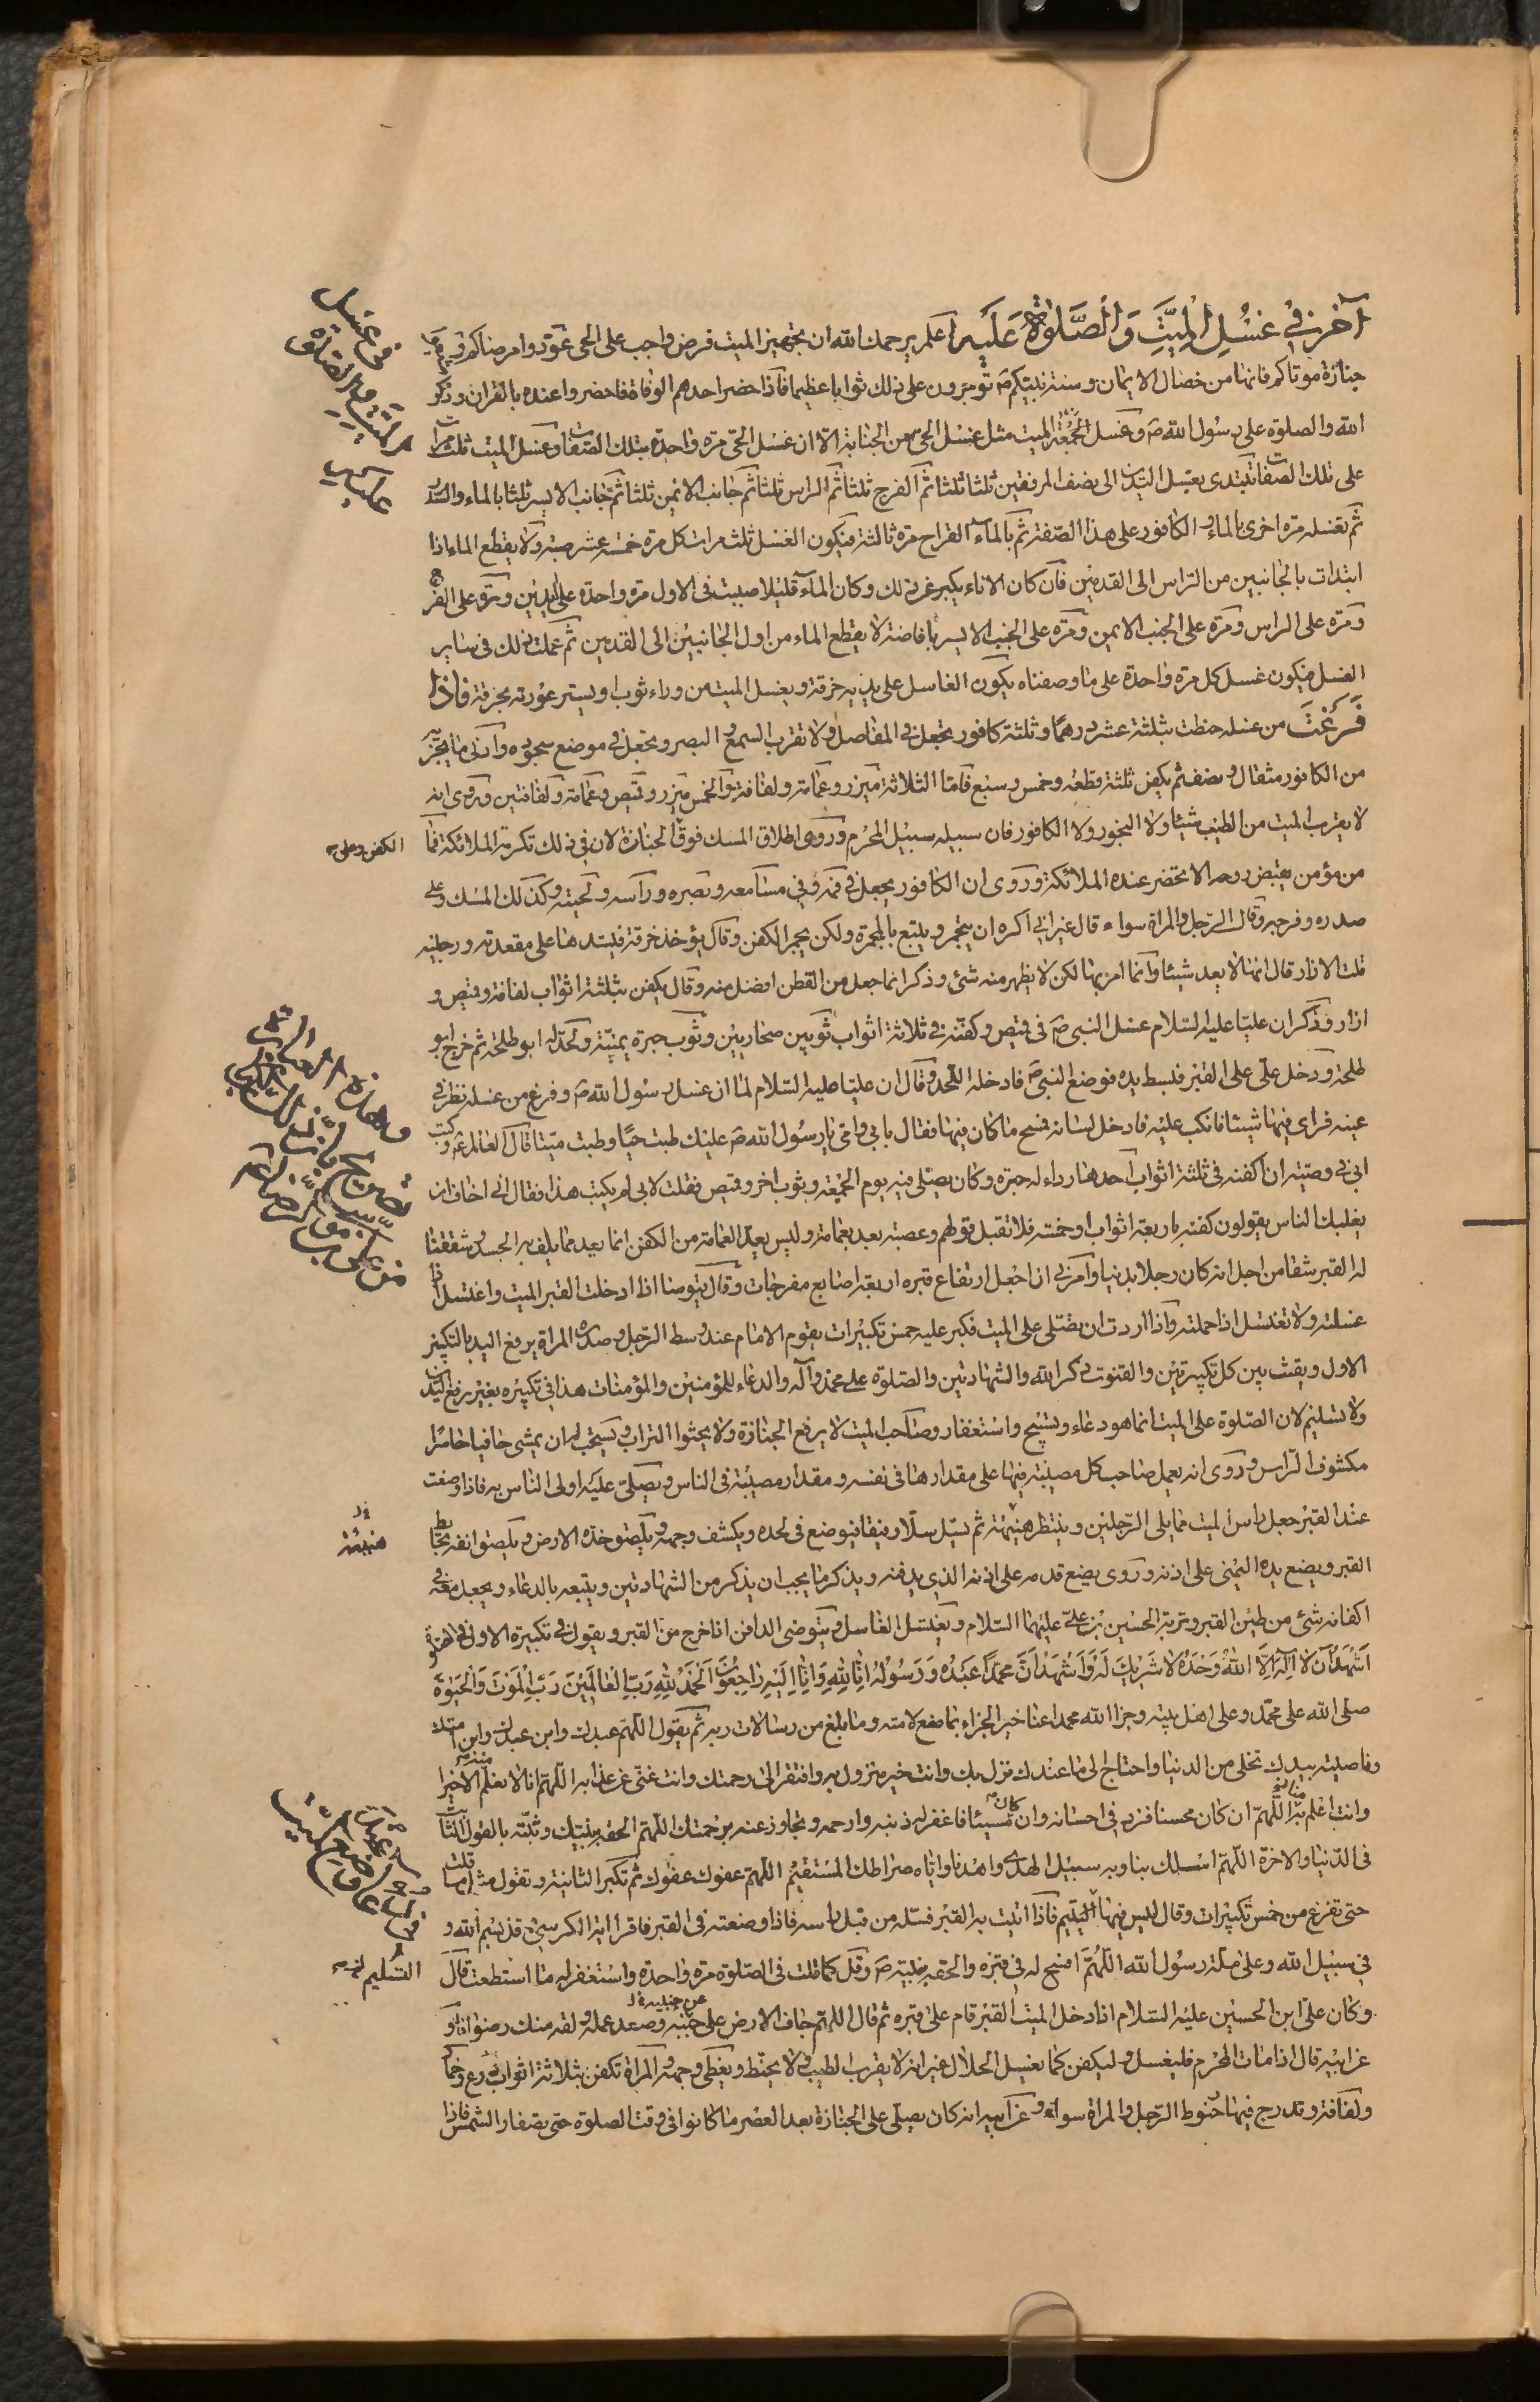 آخر في غسل الميت والصلوة عليه اعلم يرحمك الله ان تجهيز الميت فرض واجب على الحي عودوا مرضاكم وشيعوا
جنازة موتاكم فانها من خصال الايمان وسنة نبيكم ص تؤجرون على ذلك ثوابا عظيما فاذا حضر احدهم الوفاة فاحضروا عنده بالقران وذكر
الله والصلوة على رسول الله ص وغسل الميت مثل غسل الحي من الجنابة الا ان غسل الحي مرة واحدة بتلك الصفات وغسل الميت ثلث مرات
على تلك الصفات تبتدى بغسل اليدين الى نصف المرفقين ثلثا ثلثا ثم الفرج ثلثا ثم الراس ثلثا ثم جانب الايمن ثلثا ثم جانب الايسر ثلثا بالماء والسدر
ثم تغسله مرة اخرى بالماء والكافور على هذا الصفة ثم بالماء القراح مرة ثالثة فيكون الغسل ثلث مرات كل مرة خمسة عشر صبة ولا يقطع الماء اذا
ابتدات بالجانبين من الراس الى القدمين فان كان الاناء يكبر عن ذلك وكان الماء قليلا صببت في الاول مرة واحدة على اليدين ومرة على الفرج
ومرة على الراس ومرة على الجنب الايمن ومرة على الجنب الايسر بافاضة لا يقطع الماء من اول الجانبين الى القدمين ثم عملت ذلك في ساير
الغسل فيكون غسل كل مرة واحدة على ما وصفناه يكون الغاسل على يديه خرقة ويغسل الميت من وراء ثوب او يستر عورته بخرقة فاذا
فرغت من غسله حنطت بثلثة عشر درهما وثلثة كافور تجعل في المفاصل ولا تقرب السمع والبصر وتجعل في موضع سجوده وادنى ما يجزيه
من الكافور مثقال ونصف ثم يكفن بثلثة قطعة وخمس وسبع فاما الثلاثة ميزر وعمامة ولفافة والخمس ميزر وقميص وعمامة ولفافتين وروى انه
لا يقرب الميت من الطيب شيئا ولا البخور ولا الكافور فان سبيله سبيل المحرم وروى اطلاق المسك فوق الجنازة لان في ذلك تكرمة الملائكة فما
الكفن وعلى
من مؤمن يقبض روحه الا تحضر عنده الملائكة وروى ان الكافور يجعل في فمه وفي مسامعه وبصره وراسه ولحيته وكذلك المسك وعلى
صدره وفرجه وقال الرجل والمراة سواء قال غير اني اكره ان يتجمر ويتبع بالمجمرة ولكن يجمر الكفن وقال يؤخذ خرقة فيشدها على مقعدته ورجليه
قلت الازار قال انها لا يعد شيئا وانما امر بها لكن لا يظهر منه شئ وذكر انما جعل من القطن افضل منه وقال يكفن بثلثة اثواب لفافة وقميص و
ازار وذكر ان عليا عليه السلام غسل النبي ص في قميص وكفنه في ثلاثة اثواب ثوبين صحاريين وثوب حبرة يمنية ولحد له ابو طلحة ثم خرج ابو
طلحة ودخل علي على القبر فبسط يده فوضع النبي ص فادخله اللحد وقال ان عليا عليه السلام لما ان غسل رسول الله ص وفرغ من غسله نظر في
عينه فراى فيها شيئا فانكب عليه فادخل لسانه فمسح ما كان فيها فقال بابي وامي يا رسول الله ص عليك طبت حيا وطبت ميتا قال العالم ع وكتب
ابي في وصيته ان اكفنه في ثلثة اثواب احدها رداء له حبرة وكان يصلى فيه يوم الجمعة وبثوب اخر وقميص فقلت لابي لم يكتب هذا فقال اني اخاف ان
يغلبك الناس يقولون كفنه باربعة اثواب او خمسة فلا تقبل قولهم وعصبته بعد بعمامة وليس يعد العمامة من الكفن انما يعد مما يلف به الجسد وشققنا
له القبر شقا من اجل انه كان رجلا بدنيا وامرني ان اجعل ارتفاع قبره اربعة اصابع مفرجات وقال يتوضا اذا ادخلت القبر الميت واغتسل اذا
غسلته ولا تغتسل اذا حملته واذا اردت ان تصلى على الميت فكبر عليه خمس تكبيرات يقوم الامام عند وسط الرجل وصدر المراة يرفع اليد بالتكبير
الاول ويقنت بين كل تكبيرتين والقنوت ذكر الله والشهادتين والصلوة على محمد وآله والدعاء للمؤمنين والمؤمنات هذا في تكبيره بغير رفع اليدين
ولا تسليم لان الصلوة على الميت انما هو دعاء وتسبيح واستغفار وصاحب الميت لا يرفع الجنازة ولا يحثوا التراب ويستحب له ان يمشى حافيا حاسرا
مكشوف الراس وروى انه يعمل صاحب كل مصيبة فيها على مقدارها في نفسه ومقدار مصيبته في الناس ويصلى عليه اولى الناس به فاذا وضعت
عند القبر جعل راس الميت مما يلى الرجلين وينتظر هنيهة ثم يسل سلا رفيقا فيوضع في لحده ويكشف وجهه ويلصق خده الارض ويلصق انفه بحايط
هنيئة
القبر ويضع يده اليمنى على اذنه وروى يضع قدمه على اذنه الذي يدفنه ويذكر ما يجب ان يذكر من الشهادتين ويتبعه بالدعاء ويجعل معه في
اكفانه شئ من طين القبر وتربة الحسين بن علي عليهما السلام ويغتسل الغاسل ويتوضى الدافن اذا خرج من القبر ويقول في تكبيرة الاولى في القنوت
اشهد ان لا اله الا الله وحده لا شريك له واشهد ان محمدا عبده ورسوله انا لله وانا اليه راجعون الحمد لله رب العالمين رب الموت والحيوة
صلى الله على محمد وعلى اهل بيته وجزا الله محمدا عنا خير الجزاء بما صنع لامته وما بلغ من رسالات ربه ثم يقول اللهم عبدك وابن عبدك وابن امتك
وناصيته بيدك تخلى من الدنيا واحتاج الى ما عندك نزل بك وانت خير منزول به وافتقر الى رحمتك وانت غني عن عذابه اللهم انا لا نعلم منه الا خيرا
وانت اعلم به منا اللهم ان كان محسنا فزد في احسانه وان كان مسيئا فاغفر له ذنبه وارحمه وتجاوز عنه برحمتك اللهم الحقه بنبيك وثبته بالقول الثابت
في الدنيا والاخرة اللهم اسلك بنا وبه سبيل الهدى واهدنا واياه صراطك المستقيم اللهم عفوك عفوك ثم تكبر الثانية وتقول مثل ما قلت
حتى تفرغ من خمس تكبيرات وقال ليس فيها التسليم فاذا اتيت به القبر فسله من قبل راسه فاذا وضعته في القبر فاقرا اية الكرسي وقل بسم الله و
في سبيل الله وعلى ملة رسول الله اللهم افسح له في قبره والحقه بنبيه ص وقل كما قلت في الصلوة مرة واحدة واستغفر له ما استطعت قال
التسليم
وكان علي ابن الحسين عليه السلام اذا دخل الميت القبر قام على قبره ثم قال اللهم جاف الارض على جنبيه وصعد عمله ولقه منك رضوانا و
عن جنبيه
عن ابيه قال اذا مات المحرم فليغسل وليكفن كما يغسل الحلال غير انه لا يقرب الطيب ولا يحنط ويغطى وجهه والمراة تكفن بثلاثة اثواب درع وخمار
ولفافة وتدرج فيها حنوط الرجل والمراة سواء وعن ابيه انه كان يصلى على الجنازة بعد العصر ما كانوا في وقت الصلوة حتى يصفار الشمس فاذا